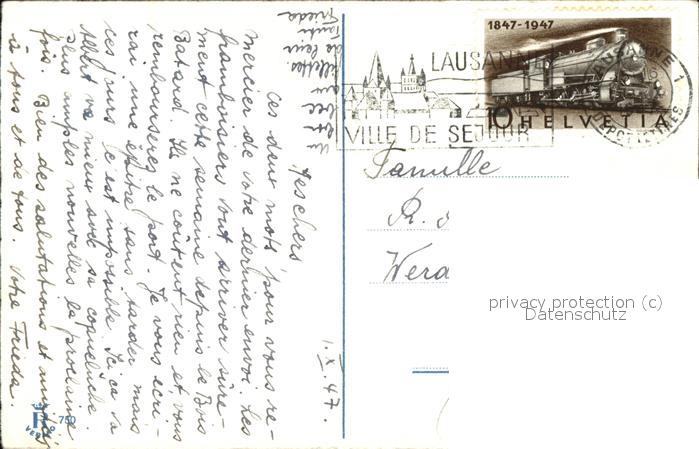 1847-1947
LAUSANNE
LAUSANNE 1
VILLE DE SEJOUR
10 HELVETIA
Famille
R.
Wera
privacy protection (c)
Datenschutz
1.X.47.
Mes chers
Ces deux mots pour vous re-
mercier de votre dernier envoi. Les
framboisiers vont arriver sûre-
ment cette semaine depuis le Bois
Batard. Ils ne coûtent rien et vous
rembourserez le port. Je vous écri-
rai une épitre sans tarder mais
ces jours c'est impossible. Ici ça a
Albert va mieux avec sa coqueluche.
plus amples nouvelles la prochaine
fois Bien des salutations et
à tous et de tous. Votre Frieda
de leur
Frieda
750